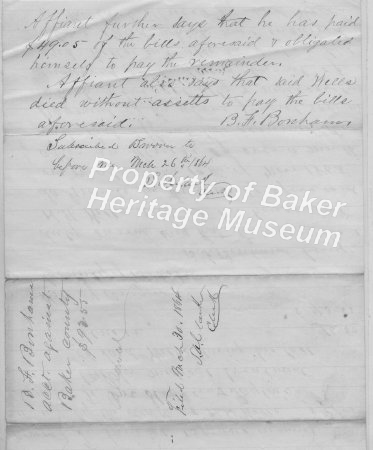 Affiant further says that he has paid
$49.05 of the bills aforesaid & obligated
himself to pay the remainder.
Affiant also says that said Wells
died without assetts to pay the bills
aforesaid. B. F. Bonham
Subscribed & sworn to
before me Mch 26th 1864
Clerk
Property of Baker
Heritage Museum
B. F. Bonham
acct. against
Baker County
$92.55
Filed Mch 30, 1864
Clerk